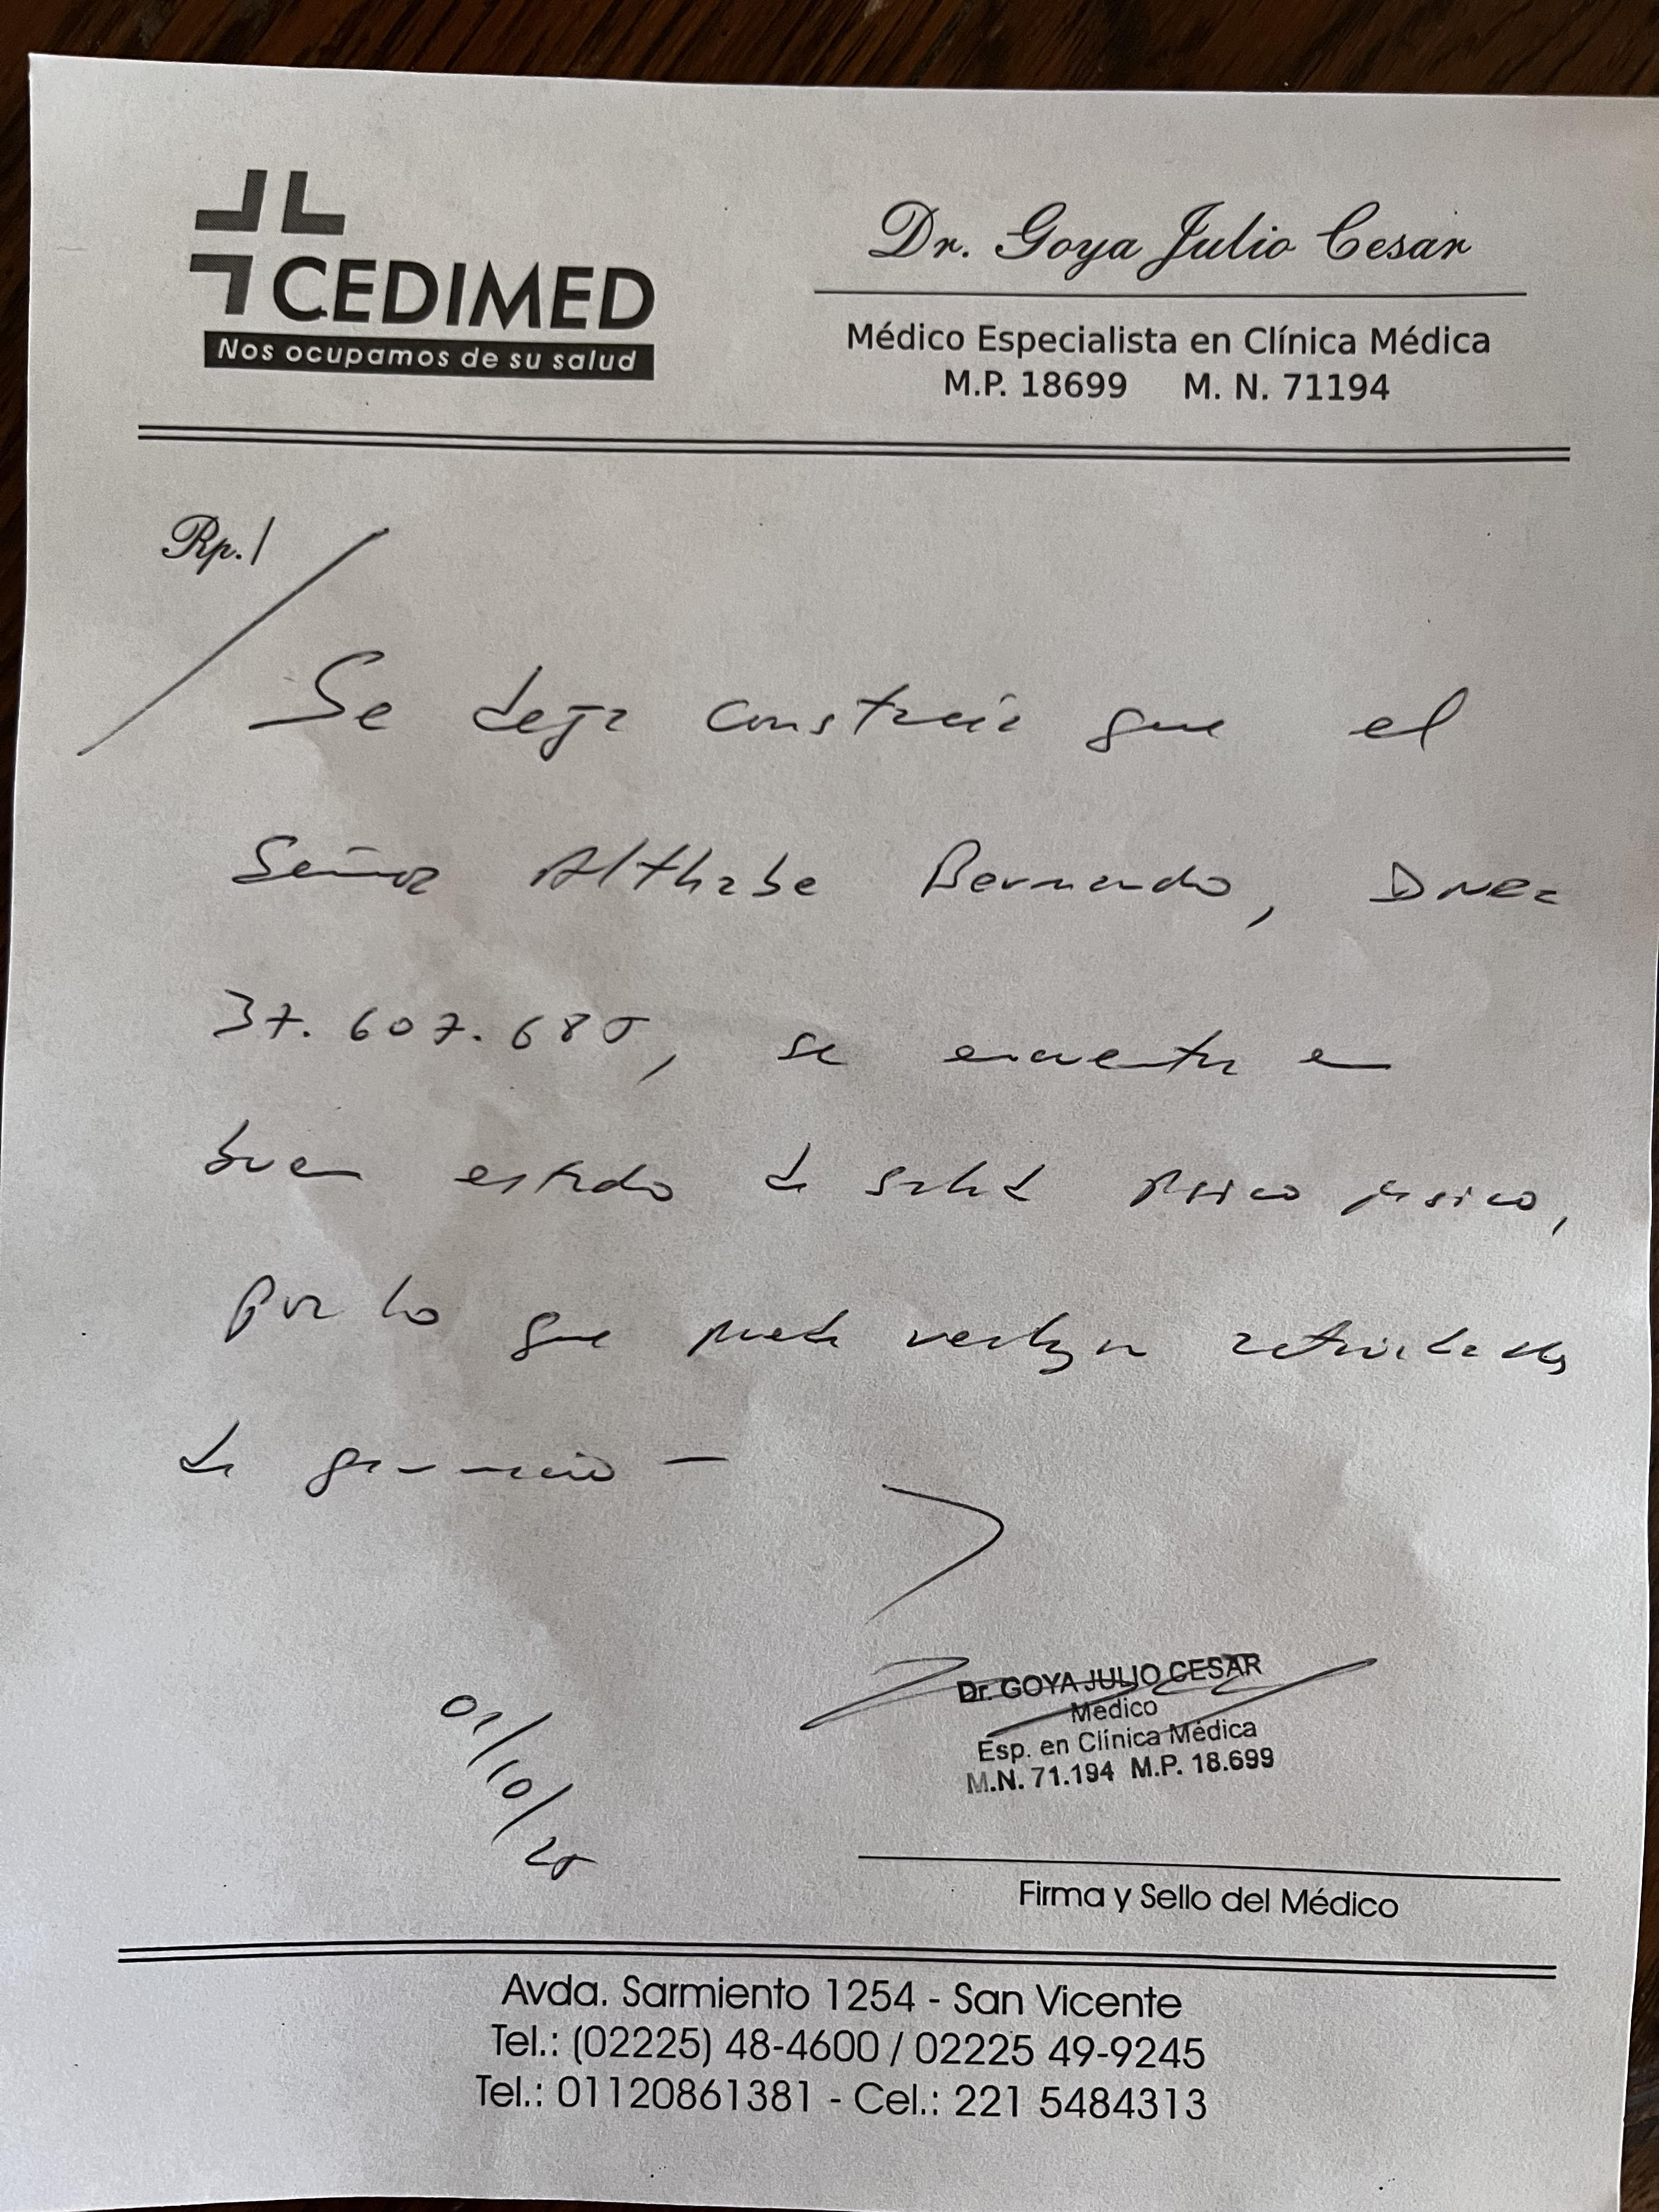 CEDIMED
Nos ocupamos de su salud
Dr. Goya Julio Cesar
Médico Especialista en Clínica Médica
M.P. 18699 M. N. 71194
Rp./
Se deja constancia que el
Señor Althabe Bernardo,
37.607.685, se encuentra en
buen estado de salud psico fisico,
por lo que puede realizar actividades
de gimnasio —
01/10/25
Dr. GOYA JULIO CESAR
Médico
Esp. en Clínica Médica
M.N. 71.194 M.P. 18.699
Firma y Sello del Médico
Avda. Sarmiento 1254 - San Vicente
Tel.: (02225) 48-4600 / 02225 49-9245
Tel.: 01120861381 - Cel.: 221 5484313